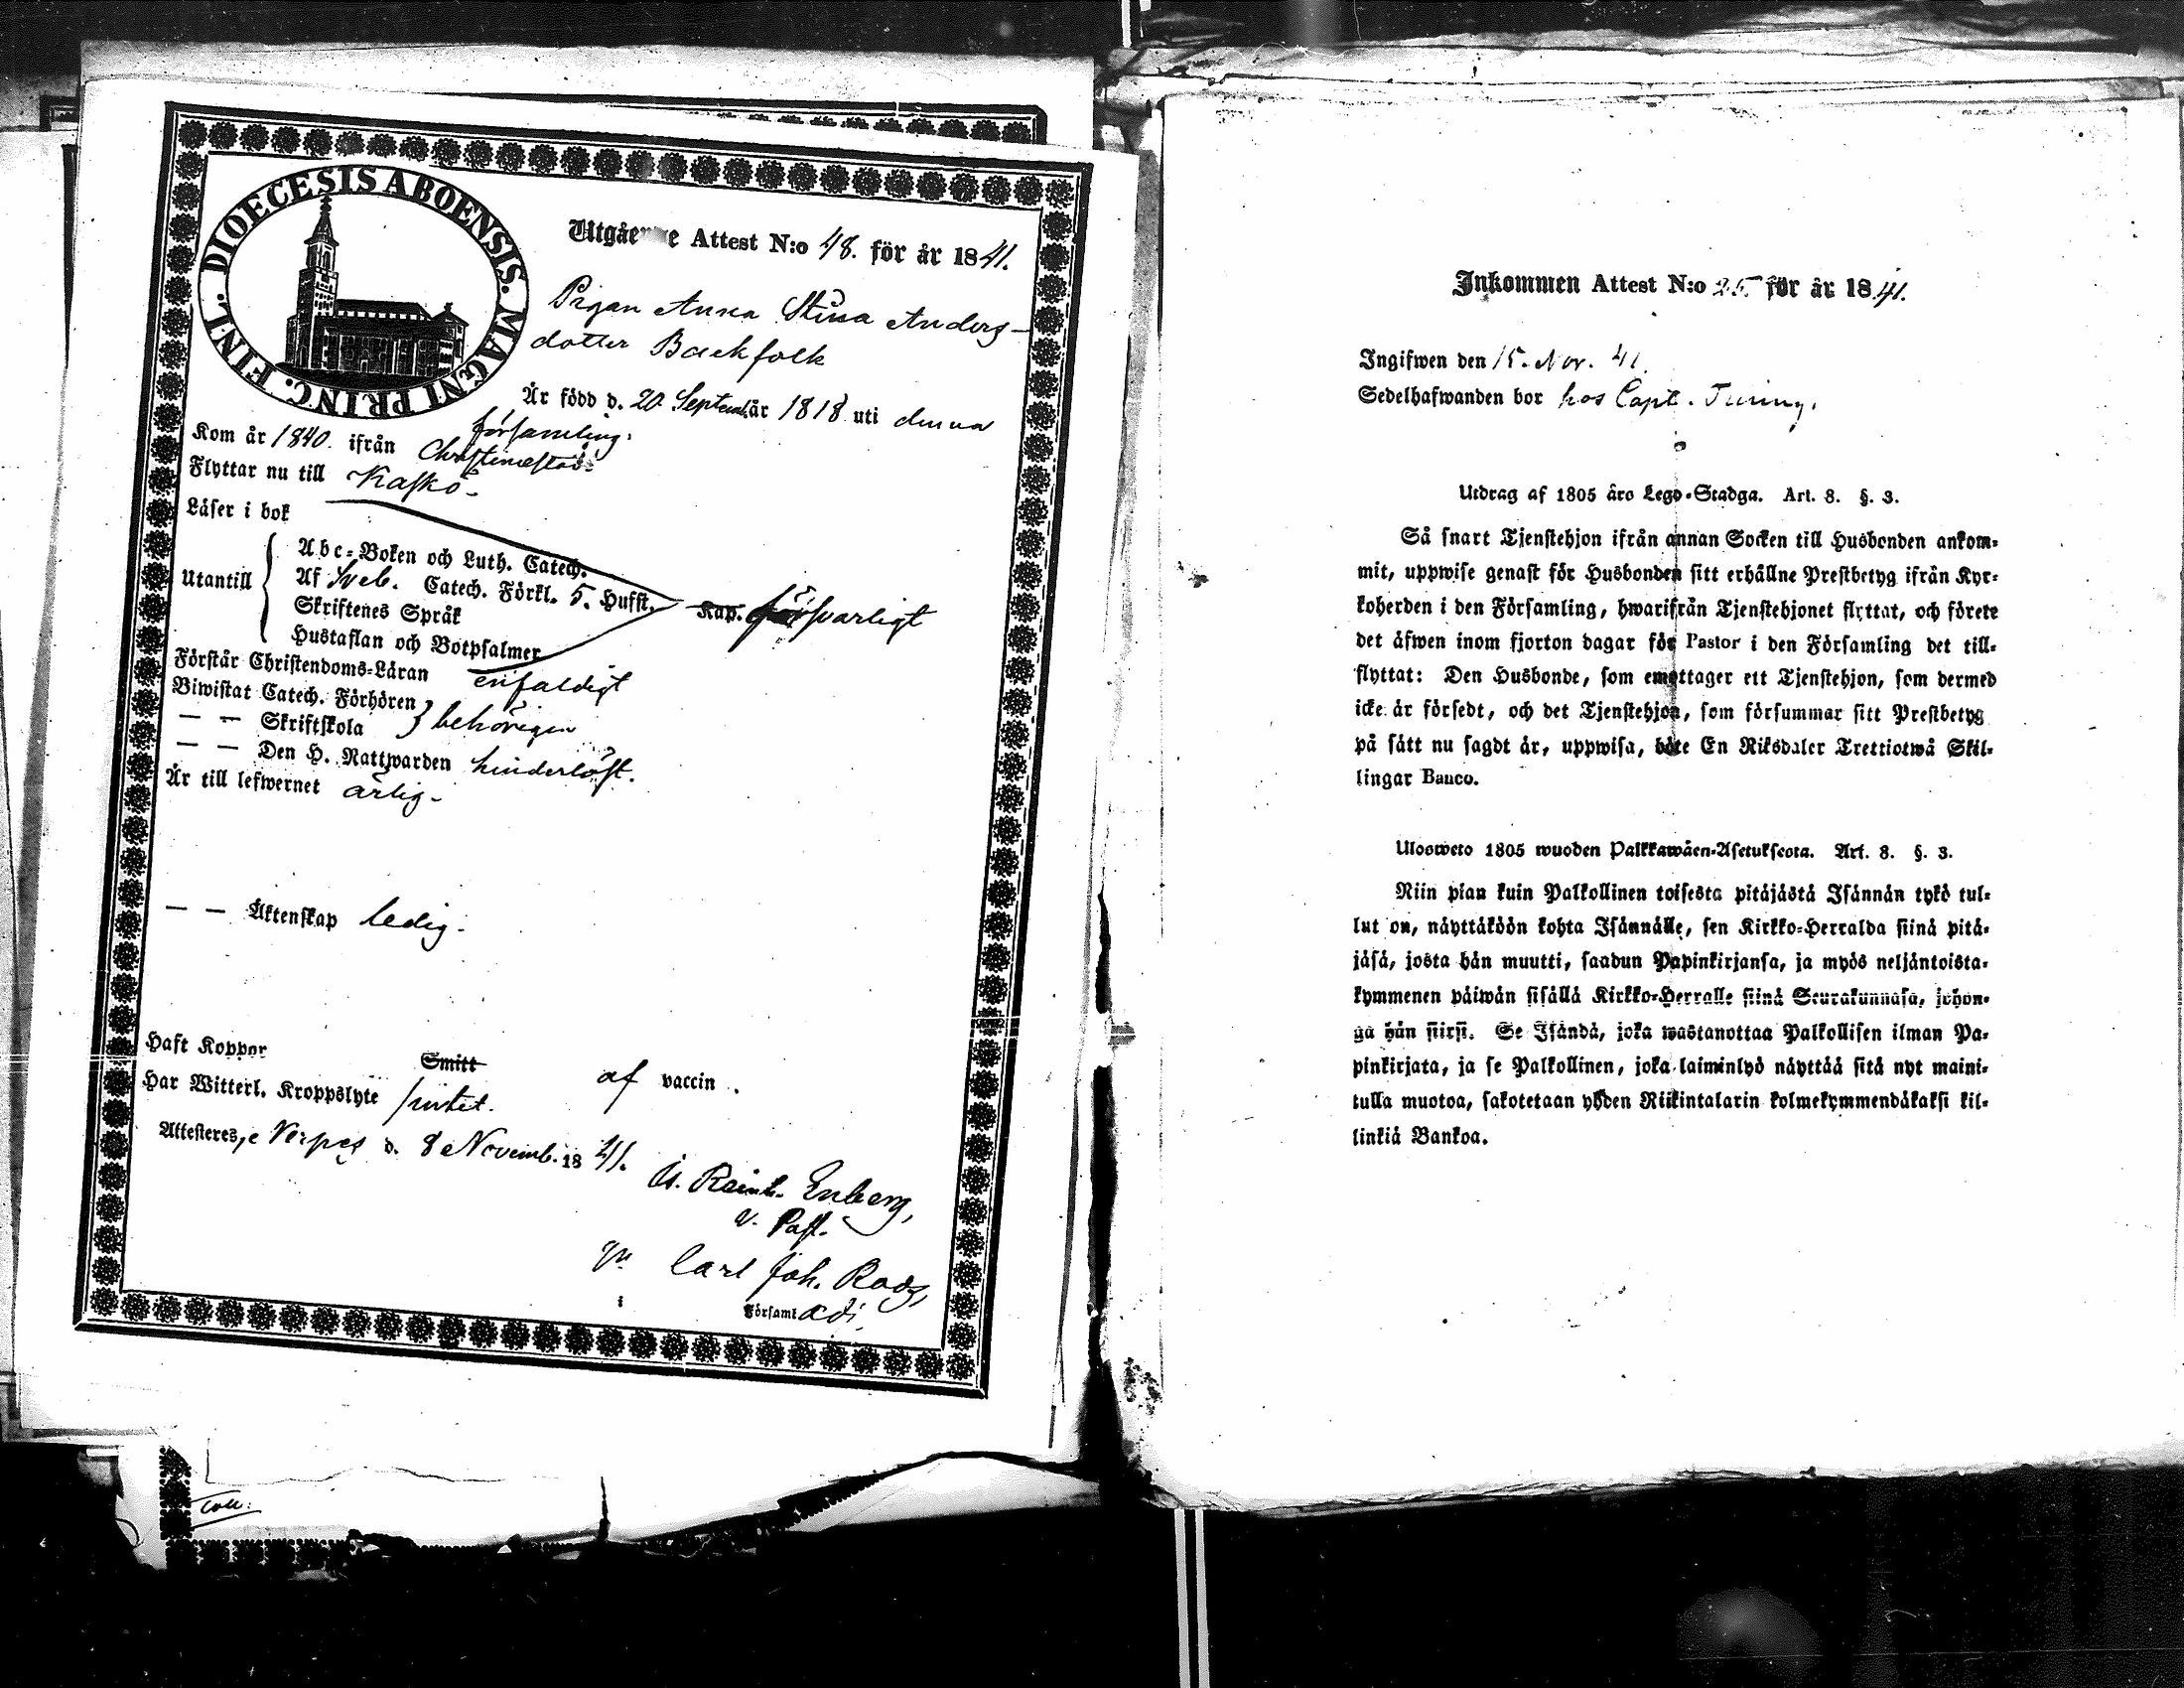 DIOECESIS ABOENSIS. MAGNI PRINC. FINL.
Utgåe e Attest N:o 48. för år 1841.
Pigan Anna Stina Anders-
dotter Backfolk
Är född d. 20 Septemb. år 1818 uti denna
församling.
Kom år 1840. ifrån Christinæstad.
Flyttar nu till Kaskö.
Läser i bok
Utantill
Abc-Boken och Luth. Catech.
Af Sveb. Catech. Förkl. 5. Hufst. Kap. försvarligt
Skriftenes Språk
Hustaflan och Botpsalmer
Förstår Christendoms-Läran enfaldigt
Biwistat Catech. Förhören
— — Skriftskola } behörigen
— — Den H. Nattwarden hinderlöst.
Är till lefwernet ärlig.
— — Äktenskap ledig.
Haft Koppor Smitt af vaccin.
Har Witterl. Kroppslyte intet.
Attesteres, Nerpes d. 8 Novemb. 1841.
Reinh. Enberg,
v. Past.
Carl Joh. Roos,
i Församl adj.
Coll.
Inkommen Attest N:o 25. för år 1841.
Ingifwen den 15. Nov. 41.
Sedelhafwanden bor hos Capt. Turing.
Utdrag af 1805 års Lego-Stadga. Art. 8. §. 3.
Så snart Tjenstehjon ifrån annan Socken till Husbonden ankom-
mit, uppwise genast för Husbonden sitt erhållne Prestbetyg ifrån Kyr-
koherden i den Församling, hwarifrån Tjenstehjonet flyttat, och förete
det äfwen inom fjorton dagar för Pastor i den Församling det till-
flyttat: Den Husbonde, som emottager ett Tjenstehjon, som dermed
icke är försedt, och det Tjenstehjon, som försummar sitt Prestbetyg
på sätt nu sagdt är, uppwisa, böte En Riksdaler Trettiotwå Skil-
lingar Banco.
Ulosweto 1805 wuoden Palkkawäen-Asetuksesta. Art. 8. §. 3.
Niin pian kuin Palkollinen toisesta pitäjästä Isännän tykö tul-
lut on, näyttäköön kohta Isännälle, sen Kirkko-Herralda siinä pitä-
jäsä, josta hän muutti, saadun Papinkirjansa, ja myös neljäntoista-
kymmenen päiwän sisällä Kirkko-Herralle siinä Seurakunnasa, johon-
ga hän siirsi. Se Isändä, joka wastanottaa Palkollisen ilman Pa-
pinkirjata, ja se Palkollinen, joka laiminlyö näyttää sitä nyt maini-
tulla muotoa, sakotetaan yhden Riikintalarin kolmekymmendäkaksi kil-
linkiä Bankoa.